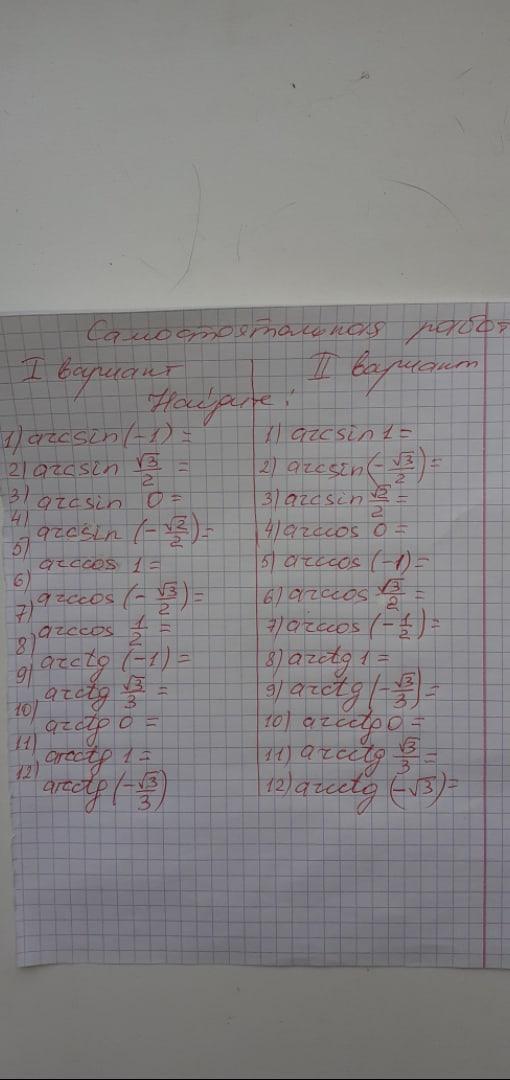 Самостоятельная работ
I вариант
II вариант
Найдите:
1) arcsin (-1) =
2) arcsin √3/2 =
3) arcsin 0 =
4) arcsin (-√2/2) =
5) arccos 1 =
6) arccos (-√3/2) =
7) arccos 1/2 =
8) arctg (-1) =
9) arctg √3/3 =
10) arctg 0 =
11) arcctg 1 =
12) arcctg (-√3/3)
1) arcsin 1 =
2) arcsin (-√3/2) =
3) arcsin √2/2 =
4) arccos 0 =
5) arccos (-1) =
6) arccos √3/2 =
7) arccos (-1/2) =
8) arctg 1 =
9) arctg (-√3/3) =
10) arcctg 0 =
11) arcctg √3/3 =
12) arcctg (-√3) =